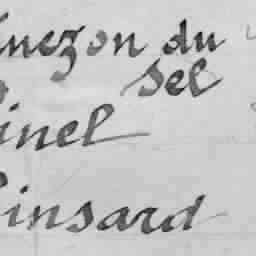 inezon du
Sel
inel
insard